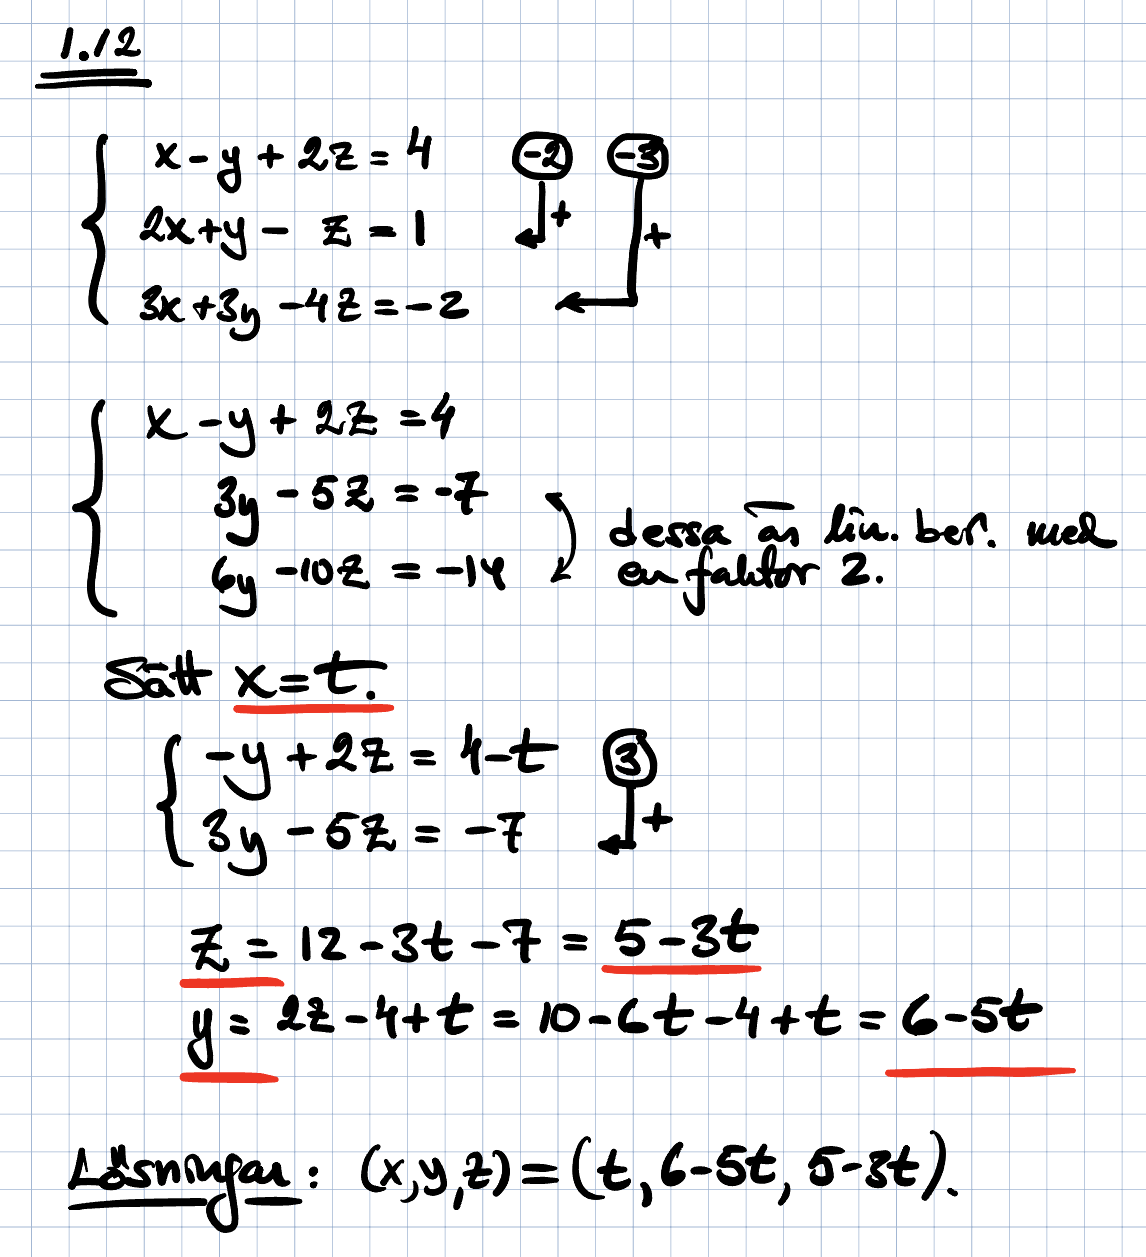 1.12
x - y + 2z = 4 (-2) (-3)
2x + y - z = 1 + +
3x + 3y - 4z = -2
x - y + 2z = 4
3y - 5z = -7
dessa är lin. ber. med
6y - 10z = -14 en faktor 2.
Sätt x = t.
-y + 2z = 4 - t (3)
3y - 5z = -7 +
z = 12 - 3t - 7 = 5 - 3t
y = 2z - 4 + t = 10 - 6t - 4 + t = 6 - 5t
Lösningar: (x, y, z) = (t, 6 - 5t, 5 - 3t).